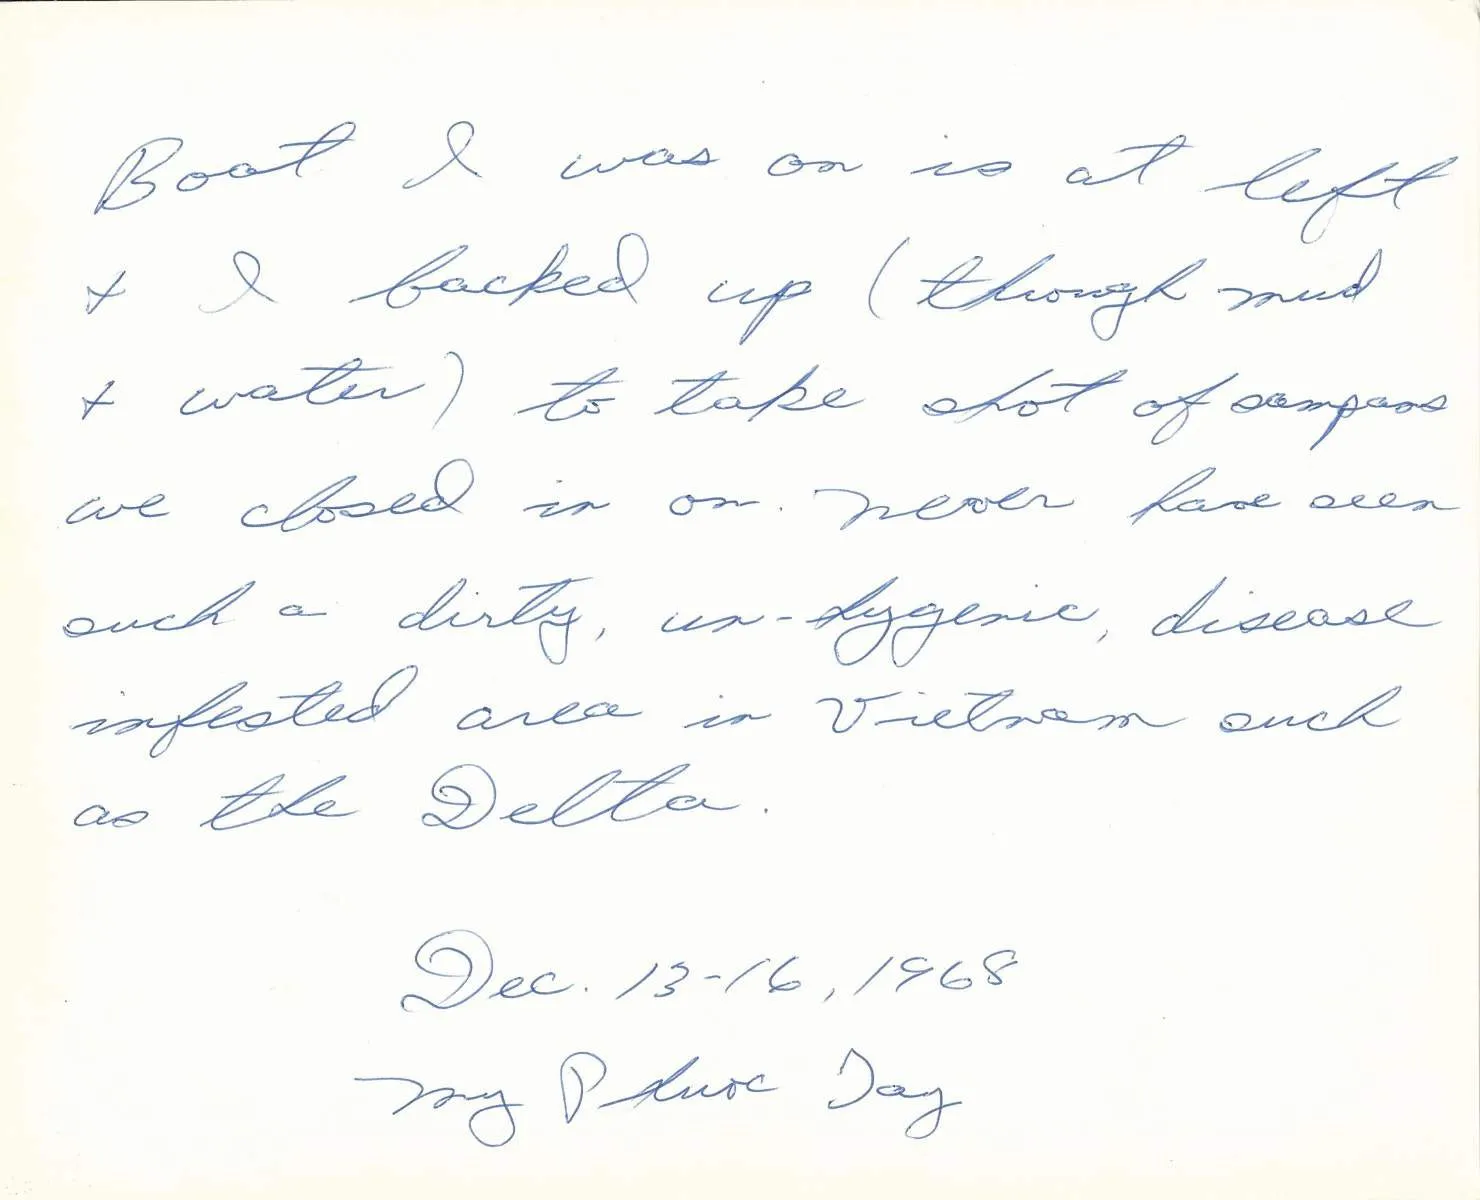 Boat I was on is at left
+ I backed up (though mud
+ water) to take shot of sampans
we closed in on. Never have seen
such a dirty, un-hygenic, disease
infested area in Vietnam such
as the Delta.
Dec. 13-16, 1968
My Phuoc Tay